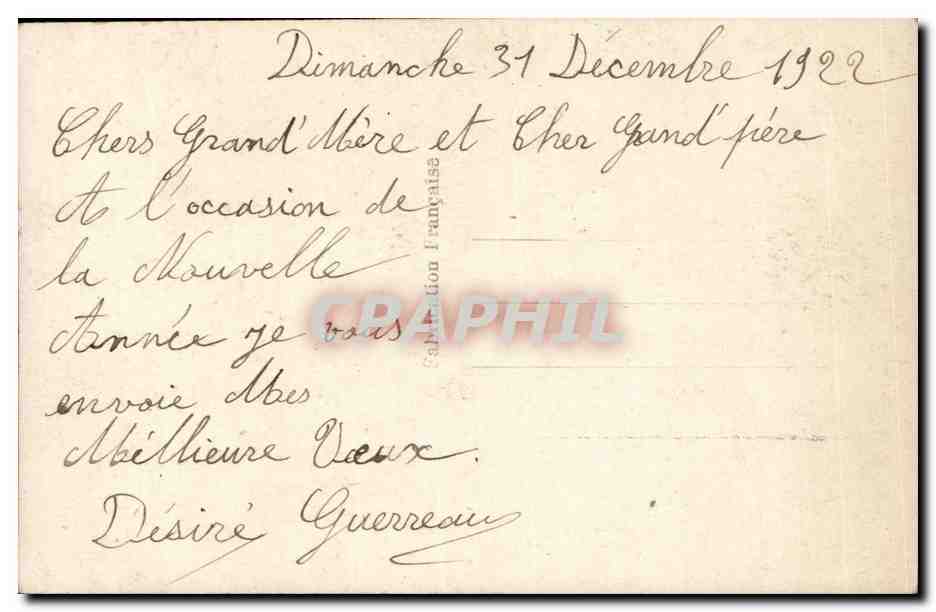 Dimanche 31 Décembre 1922
Chers Grand' Mère et Cher Gand' père
A l'occasion de
la Nouvelle
Année je vous
envoie Mes
Méllieure Vœux.
Désiré Guerreau
Fabrication Française
CPAPHIL